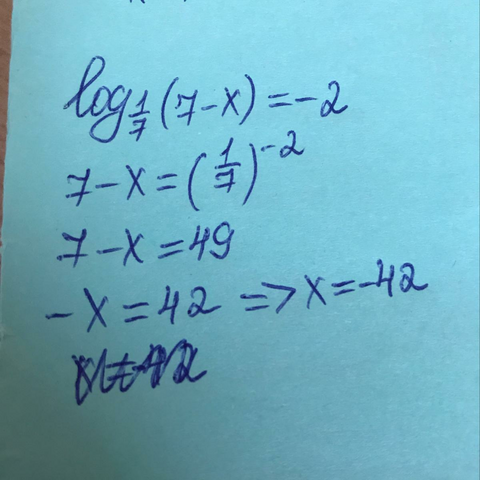 log_{1/7}(7-x)=-2
7-x=(1/7)^{-2}
7-x=49
-x=42 => x=-42